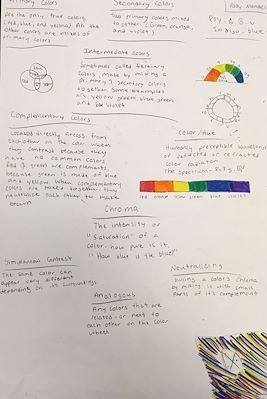 Primary Colors
Are the only true colors
(red, blue and yellow) All the
other colors are mixes of
primary colors
Secondary Colors
Two primary colors mixed
together (Green, orange,
and violet)
Roy G B V
Indigo - blue
Intermediate Colors
Sometimes called tertiary
colors, made by mixing a
primary & secondary colors
together. Some examples
are yellow green, blue green
and blue violet
Complementary Colors
Located directly across from
each other on the color wheel
they contrast because they
have no common colors.
Red & green are complements
because green is made of blue
and yellow. When complementary
colors are mixed together they
neutralize each other to make
brown
Color/Hue
Humanly perceptible wavelength
of reflected or refracted
color radiation
The spectrum - R o Y G B V
red orange yellow green blue violet
Chroma
The intensity or
"saturation" of a
color - how pure is it.
"How blue is the blue?"
Simultaneous Contrast
The same color can
appear very different
depending on its surroundings
Neutralizing
Dulling a color's chroma
by mixing it with small
parts of its complement
Analogous
Any colors that are
related or next to
each other on the color
wheel